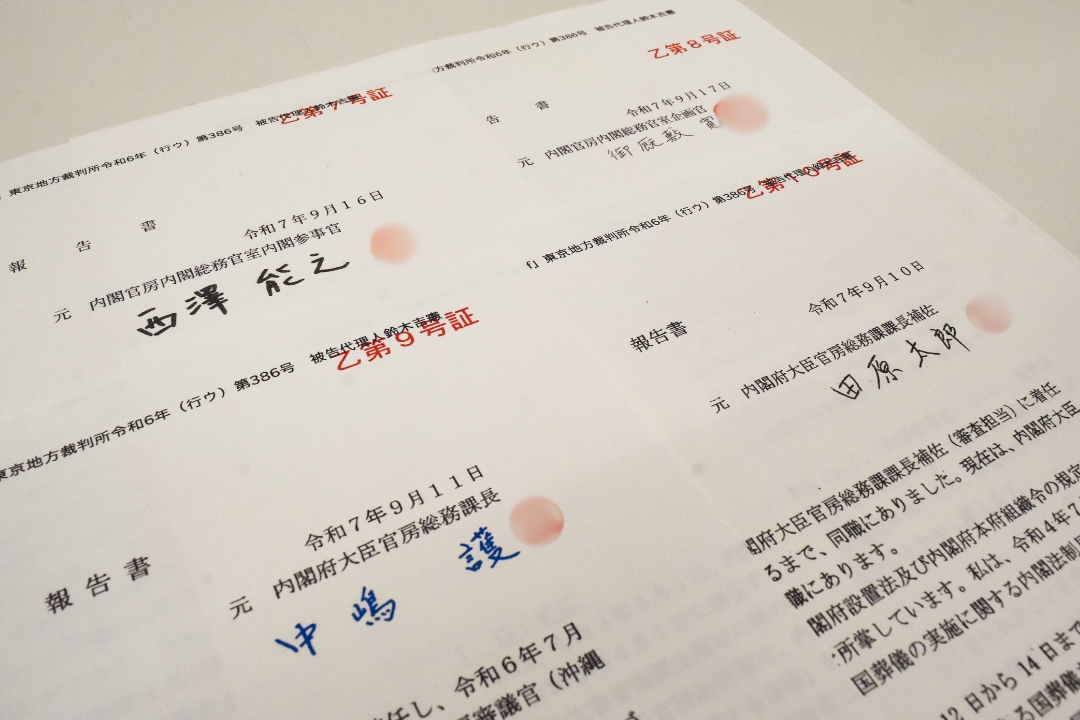 東京地方裁判所令和6年（行ウ）第386号 被告代理人鈴木吉憲
乙第7号証
報告書
令和7年9月16日
元 内閣官房内閣総務官室内閣参事官
西澤 能之
方裁判所令和6年（行ウ）第386号 被告代理人鈴木吉憲
乙第8号証
告書
令和7年9月17日
元 内閣官房内閣総務官室企画官
御厩敷 寛
東京地方裁判所令和6年（行ウ）第386号 被告代理人鈴木吉憲
乙第9号証
報告書
令和7年9月11日
元 内閣府大臣官房総務課課長
中嶋 護
任し、令和6年7月
審議官（沖縄
東京地方裁判所令和6年（行ウ）第386号 被告代理人鈴木吉憲
乙第10号証
報告書
令和7年9月10日
元 内閣府大臣官房総務課課長補佐
田原太郎
閣府大臣官房総務課課長補佐（審査担当）に着任
るまで、同職にありました。現在は、内閣府大臣
職にあります。
閣府設置法及び内閣府本府組織令の規定
所掌しています。私は、令和4年7
国葬儀の実施に関する内閣法制局
12日から14日まで
る国葬儀